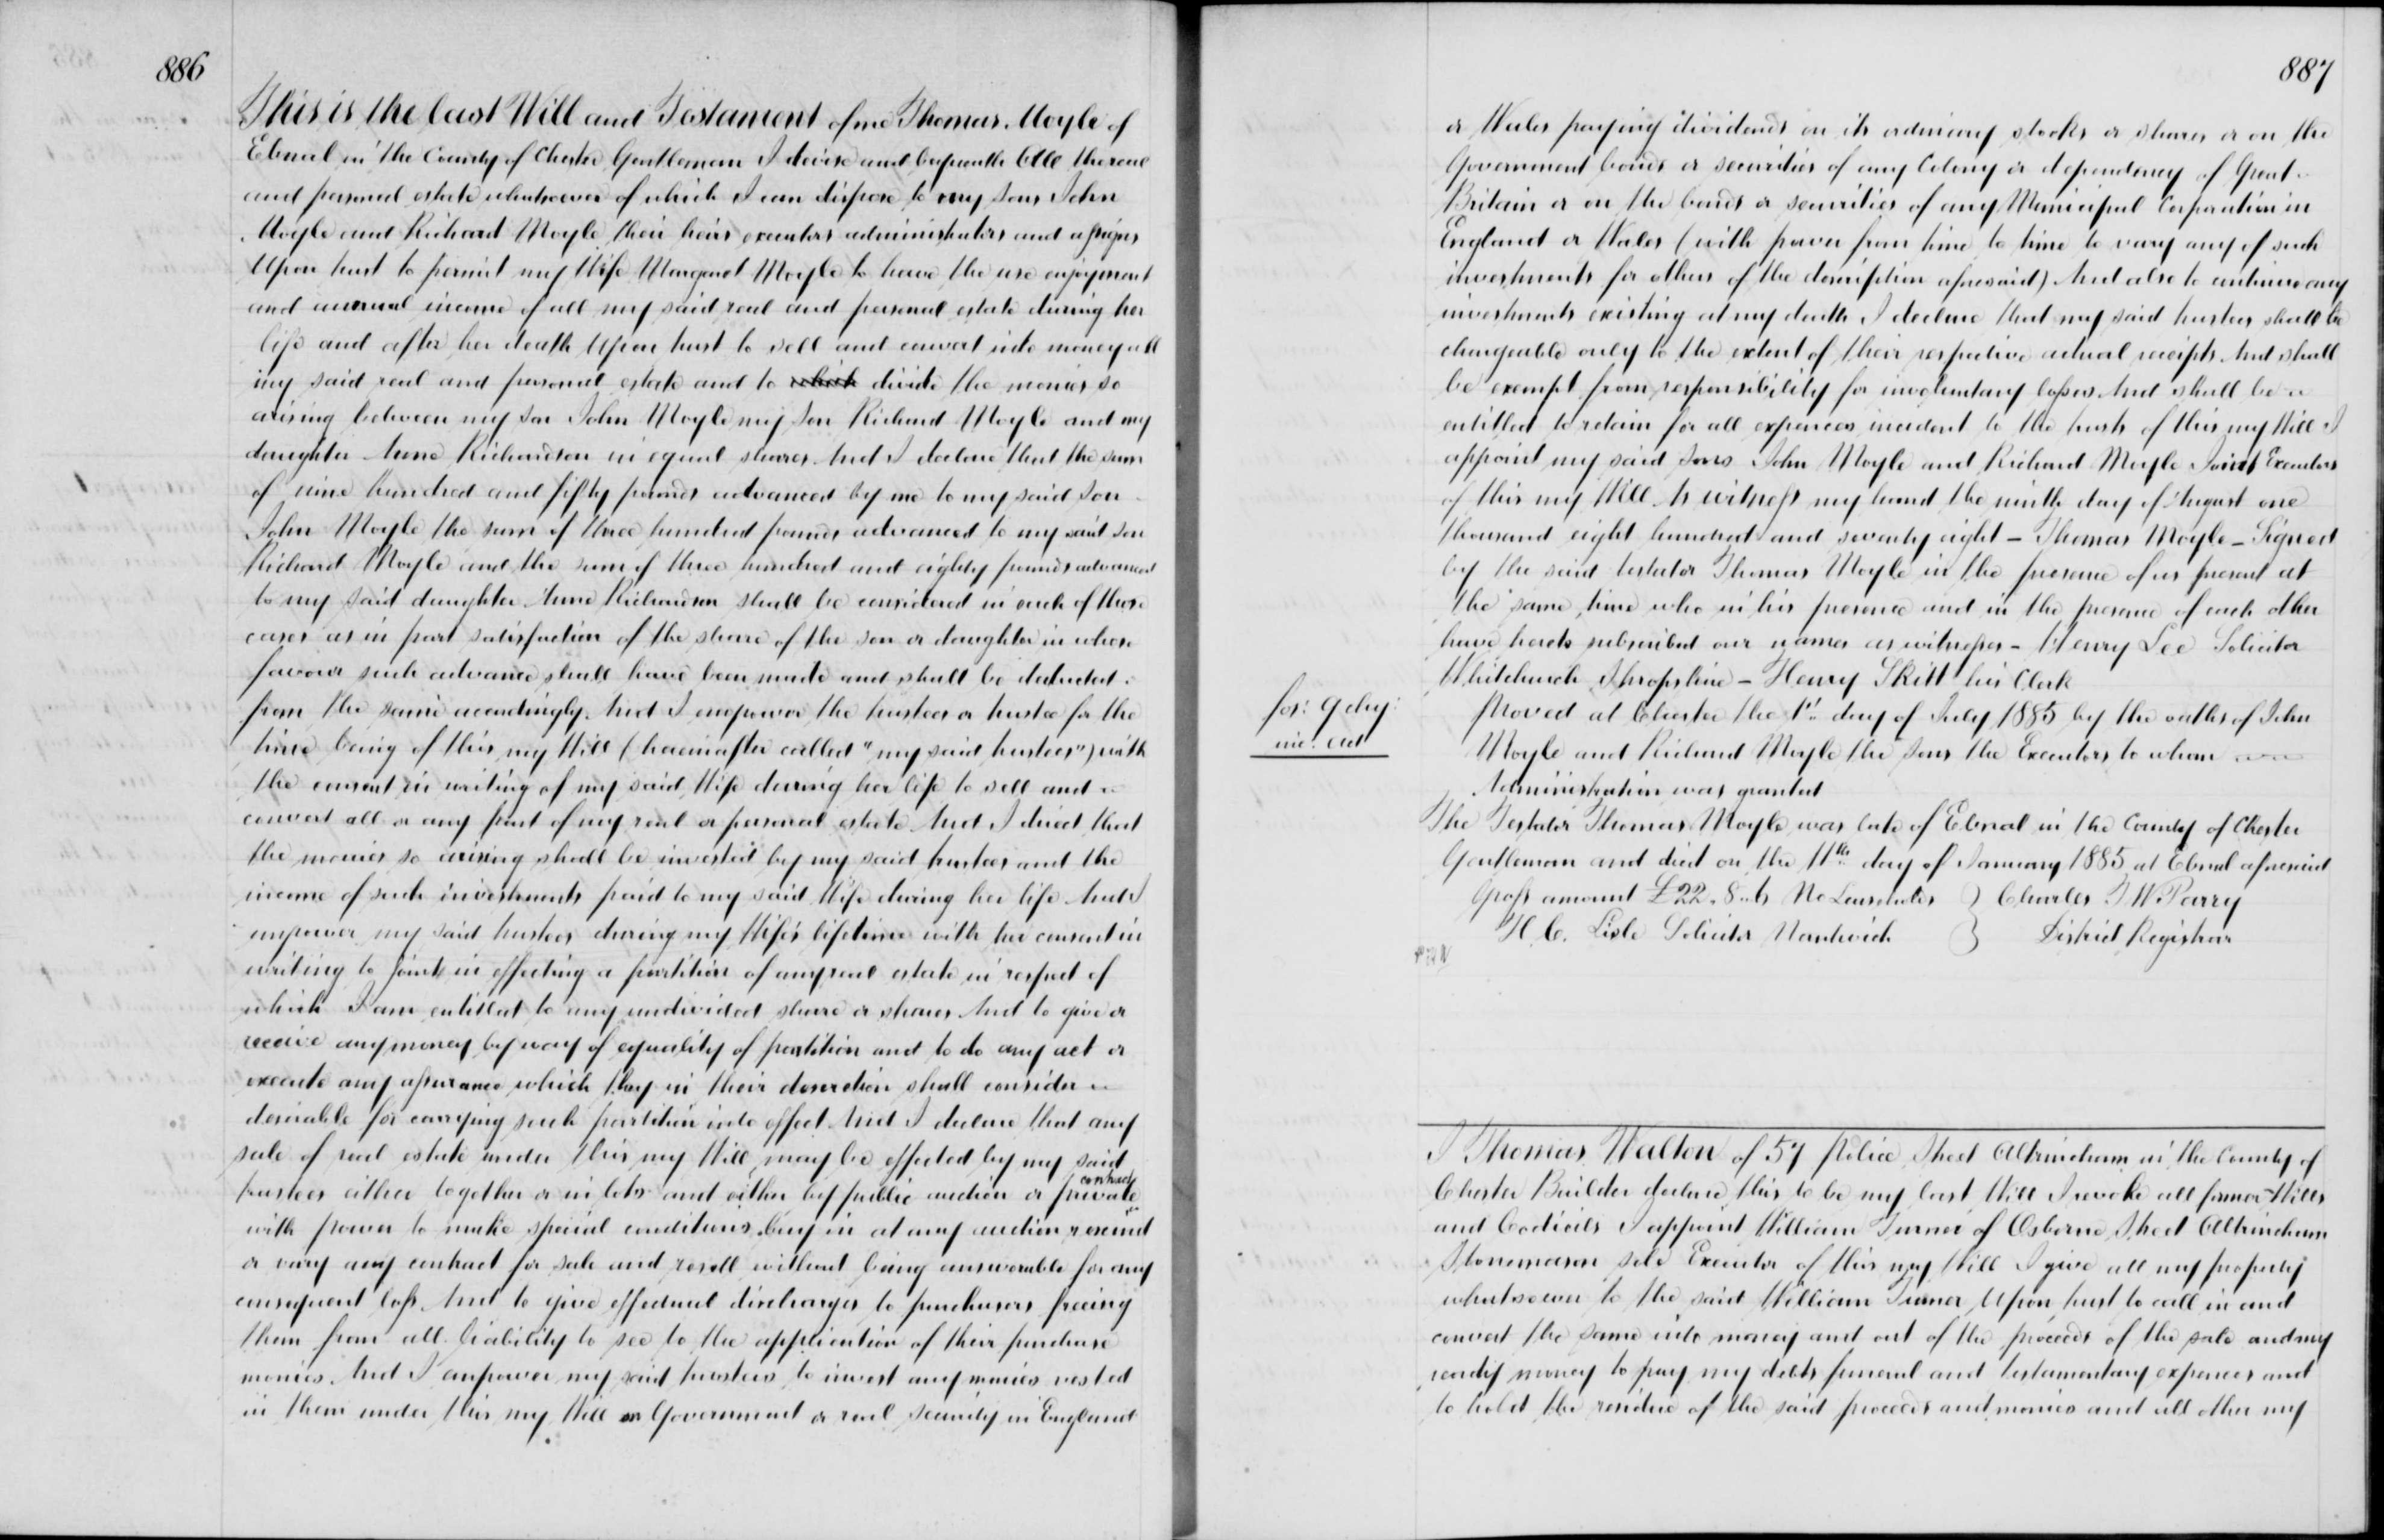 886
This is the last Will and Testament of me Thomas Moyle of
Ebnal in the County of Chester Gentleman I devise and bequeath All the real
and personal estate whatsoever of which I can dispose to my sons John
Moyle and Richard Moyle their heirs executors administrators and assigns
Upon trust to permit my Wife Margaret Moyle to have the use enjoyment
and annual income of all my said real and personal estate during her
life and after her death Upon trust to sell and convert into money all
my said real and personal estate and to divide the monies so
arising between my son John Moyle my son Richard Moyle and my
daughter Anne Richardson in equal shares And I declare that the sum
of nine hundred and fifty pounds advanced by me to my said son
John Moyle the sum of three hundred pounds advanced to my said son
Richard Moyle and the sum of three hundred and eighty pounds advanced
to my said daughter Anne Richardson shall be considered in each of those
cases as in part satisfaction of the share of the son or daughter in whose
favour such advance shall have been made and shall be deducted
from the same accordingly And I empower the trustees or trustee for the
time being of this my Will (hereinafter called "my said trustees") with
the consent in writing of my said Wife during her life to sell and
convert all or any part of my real or personal estate And I direct that
the monies so arising shall be invested by my said trustees and the
income of such investments paid to my said Wife during her life And I
empower my said trustees during my Wife's lifetime with her consent in
writing to joint in effecting a partition of any real estate in respect of
which I am entitled to any undivided share or shares And to give or
receive any money by way of equality of partition and to do any act or
execute any assurance which they in their discretion shall consider
desirable for carrying such partition into effect And I declare that any
sale of real estate under this my Will may be effected by my said
trustees either together or in lots and either by public auction or private contract
with power to make special conditions buy in at any auction rescind
or vary any contract for sale and resell without being answerable for any
consequent loss And to give effectual discharges to purchasers freeing
them from all liability to see to the application of their purchase
monies And I empower my said trustees to invest any monies vested
in them under this my Will on Government or real security in England
887
or Wales paying dividends on its ordinary stocks or shares or on the
Government bonds or securities of any Colony or dependency of Great
Britain or on the bonds or securities of any Municipal Corporation in
England or Wales (with power from time to time to vary any of such
investments for others of the description aforesaid) And also to continue any
investments existing at my death I declare that my said trustees shall be
chargeable only to the extent of their respective actual receipts And shall
be exempt from responsibility for involuntary losses And shall be
entitled to retain for all expences incident to the trusts of this my Will I
appoint my said sons John Moyle and Richard Moyle Joint Executors
of this my Will As witness my hand the ninth day of August one
thousand eight hundred and seventy eight - Thomas Moyle - Signed
by the said testator Thomas Moyle in the presence of us present at
the same time who in his presence and in the presence of each other
have hereto subscribed our names as witnesses - Henry Lee Solicitor
Whitchurch Shropshire - Henry Skitt his Clerk
Proved at Chester the 1st day of July 1885 by the oaths of John
Moyle and Richard Moyle the Sons the Executors to whom
Administration was granted
The Testator Thomas Moyle was late of Ebnal in the County of Chester
Gentleman and died on the 11th day of January 1885 at Ebnal aforesaid
Gross amount £22.8.6 No Leaseholds } Charles T W Parry
H. C. Lisle Solicitor Nantwich } District Registrar
I Thomas Walton of 57 Police Street Altrincham in the County of
Chester Builder declare this to be my last Will I revoke all former Wills
and Codicils I appoint William Turner of Osborne Street Altrincham
Stonemason sole Executor of this my Will I give all my property
whatsoever to the said William Turner Upon trust to call in and
convert the same into money and out of the proceeds of the sale and my
ready money to pay my debts funeral and testamentary expences and
to hold the residue of the said proceeds and monies and all other my